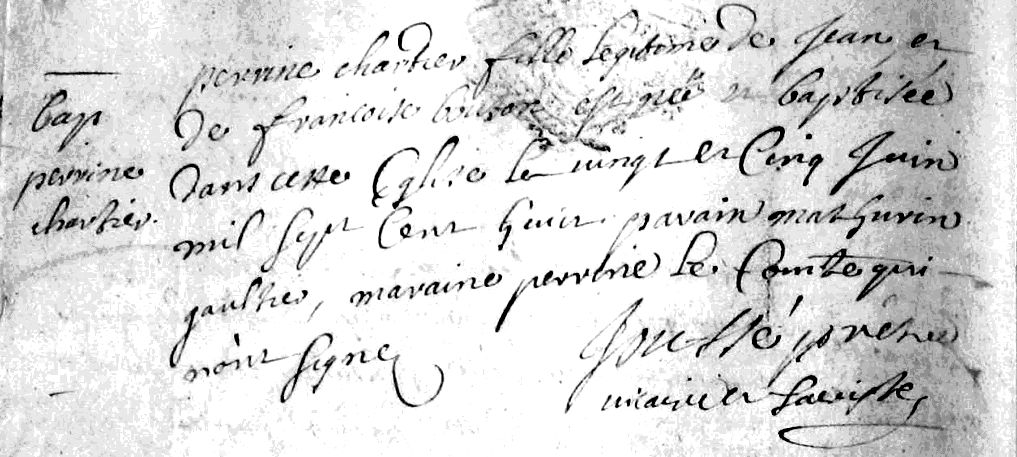 bap
perrine
chartier
perrine chartier fille legitime de Jean et
de francoise est née et baptisée
dans cette Eglise le vingt et Cinq Juin
mil sept Cent huit parain mathurin
gaultier, maraine perrine le Comte qui
n'ont signe
Joussé prêtre
vicaire et Sacriste